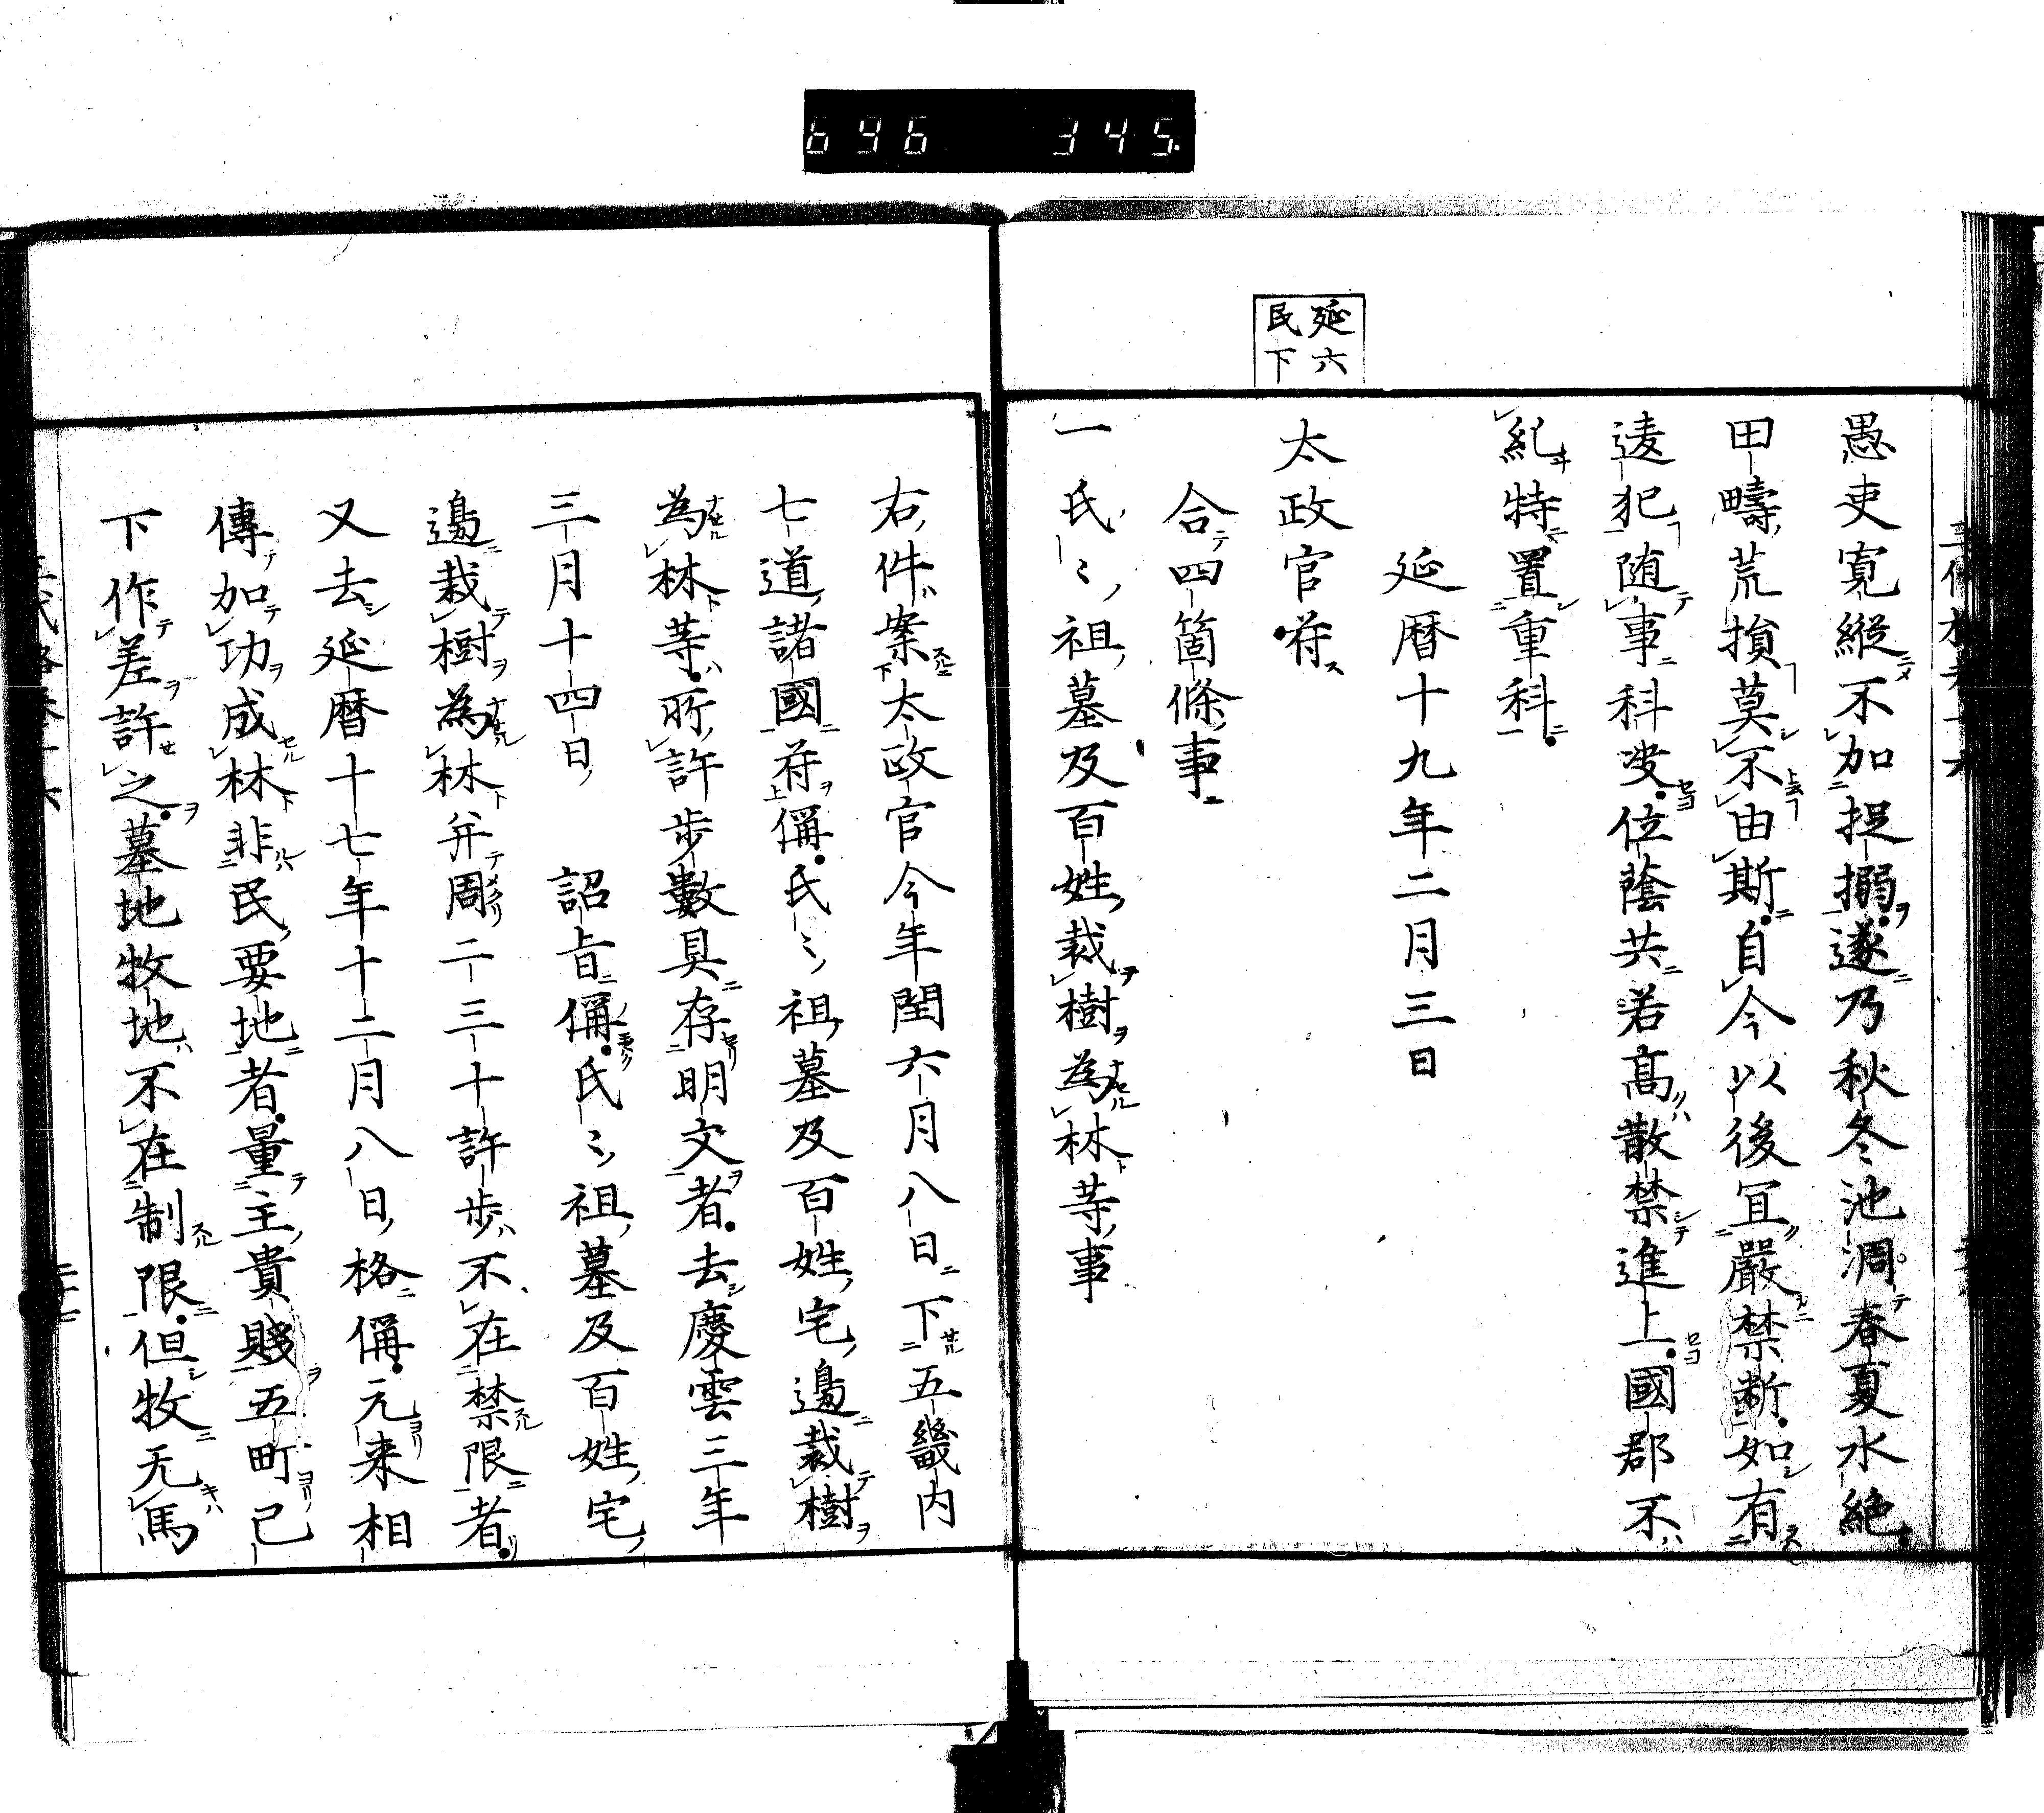 696 345
延六
民下
愚吏寛縦不加捉搦遂乃秋冬池凋春夏水絶
田疇荒損莫不由斯自今以後冝嚴禁断如有
違犯随事科决位蔭共若髙散禁進上國郡不
糺特置重科
延暦十九年二月三日
太政官符
合四箇條事
一氏〻祖墓及百姓裁樹為林等事
右件案太政官今年閏六月八日下五畿内
七道諸國符偁氏〻祖墓及百姓宅邊裁樹
為林等所許歩數具存明文者去慶雲三年
三月十四日 詔旨偁氏〻祖墓及百姓宅
邊栽樹為林并周二三十許歩不在禁限者
又去延暦十七年十二月八日格偁元来相
傳加功成林非民要地者量主貴賤五町已
下作差許之墓地牧地不在制限但牧无馬